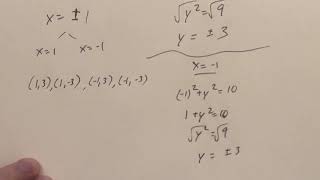 x = ± 1
x = 1 x = -1
(1,3), (1,-3), (-1,3), (-1,-3)
√y² = √9
y = ± 3
x = -1
(-1)² + y² = 10
1 + y² = 10
√y² = √9
y = ± 3